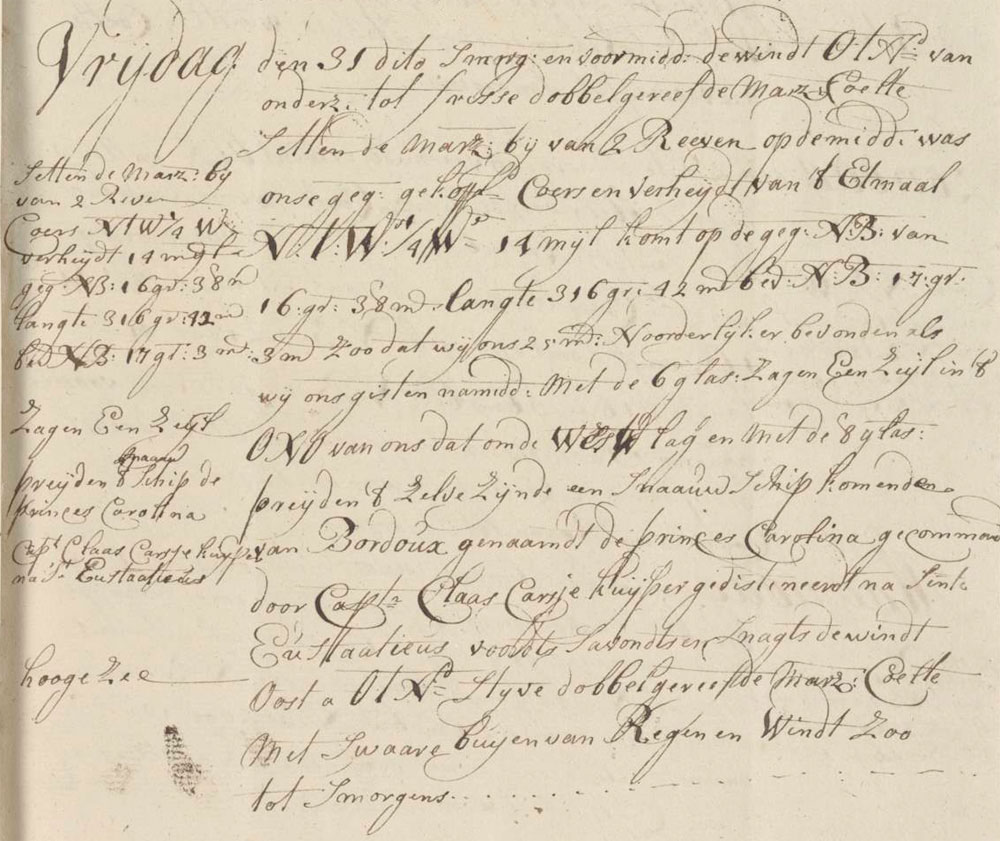 Vrijdag den 31 dito Smorg: en voormidd: de windt OtNd van
onderz: tot frisse dobbelgereefde Marz: Coelte
Setten de Marz: by van 2 Reeven op de midd: was
onse geg: gek: Coers en verheydt van 't Etmaal
N: t: W: 1/4 W 14 myl komt op de geg: N:B: van
16. gr: 38 md. langte 316 gr: 42 md bed: N: B: 17: gr:
3 md Zoo dat wy ons 25 md: Noorderlyk er bevonden als
wy ons gisten namidd: Met de 6 glas: Zagen Een Zeyl in 't
ONO van ons dat om de West lag en Met de 8 glas:
preyden 't Zelve Zynde een Snaauw Schip komende
van Bordoux genaamdt de princes Carolina gecommand
door Captn Claas Carsje kuyper gedistineerdt na Sint
Eustaatieus voorts Savondts en Snagts de windt
Oost a OtNd Styve dobbelgereefde Marz: Coelte
Met Swaare buyen van Regen en Windt Zoo
tot Smorgens
Setten de Marz: by
van 2 Reeven
Coers NtW 1/4 W
verheydt 14 m
geg: NB: 16 gr: 38 m
langte 316 gr: 42 md
bed NB: 17 gr: 3 md:
Zagen Een Zeyl
preyden 't Snaauw Schip de
princes Carolina
Capt Claas Carsje kuyper
na St Eustaatieus
hooge Zee